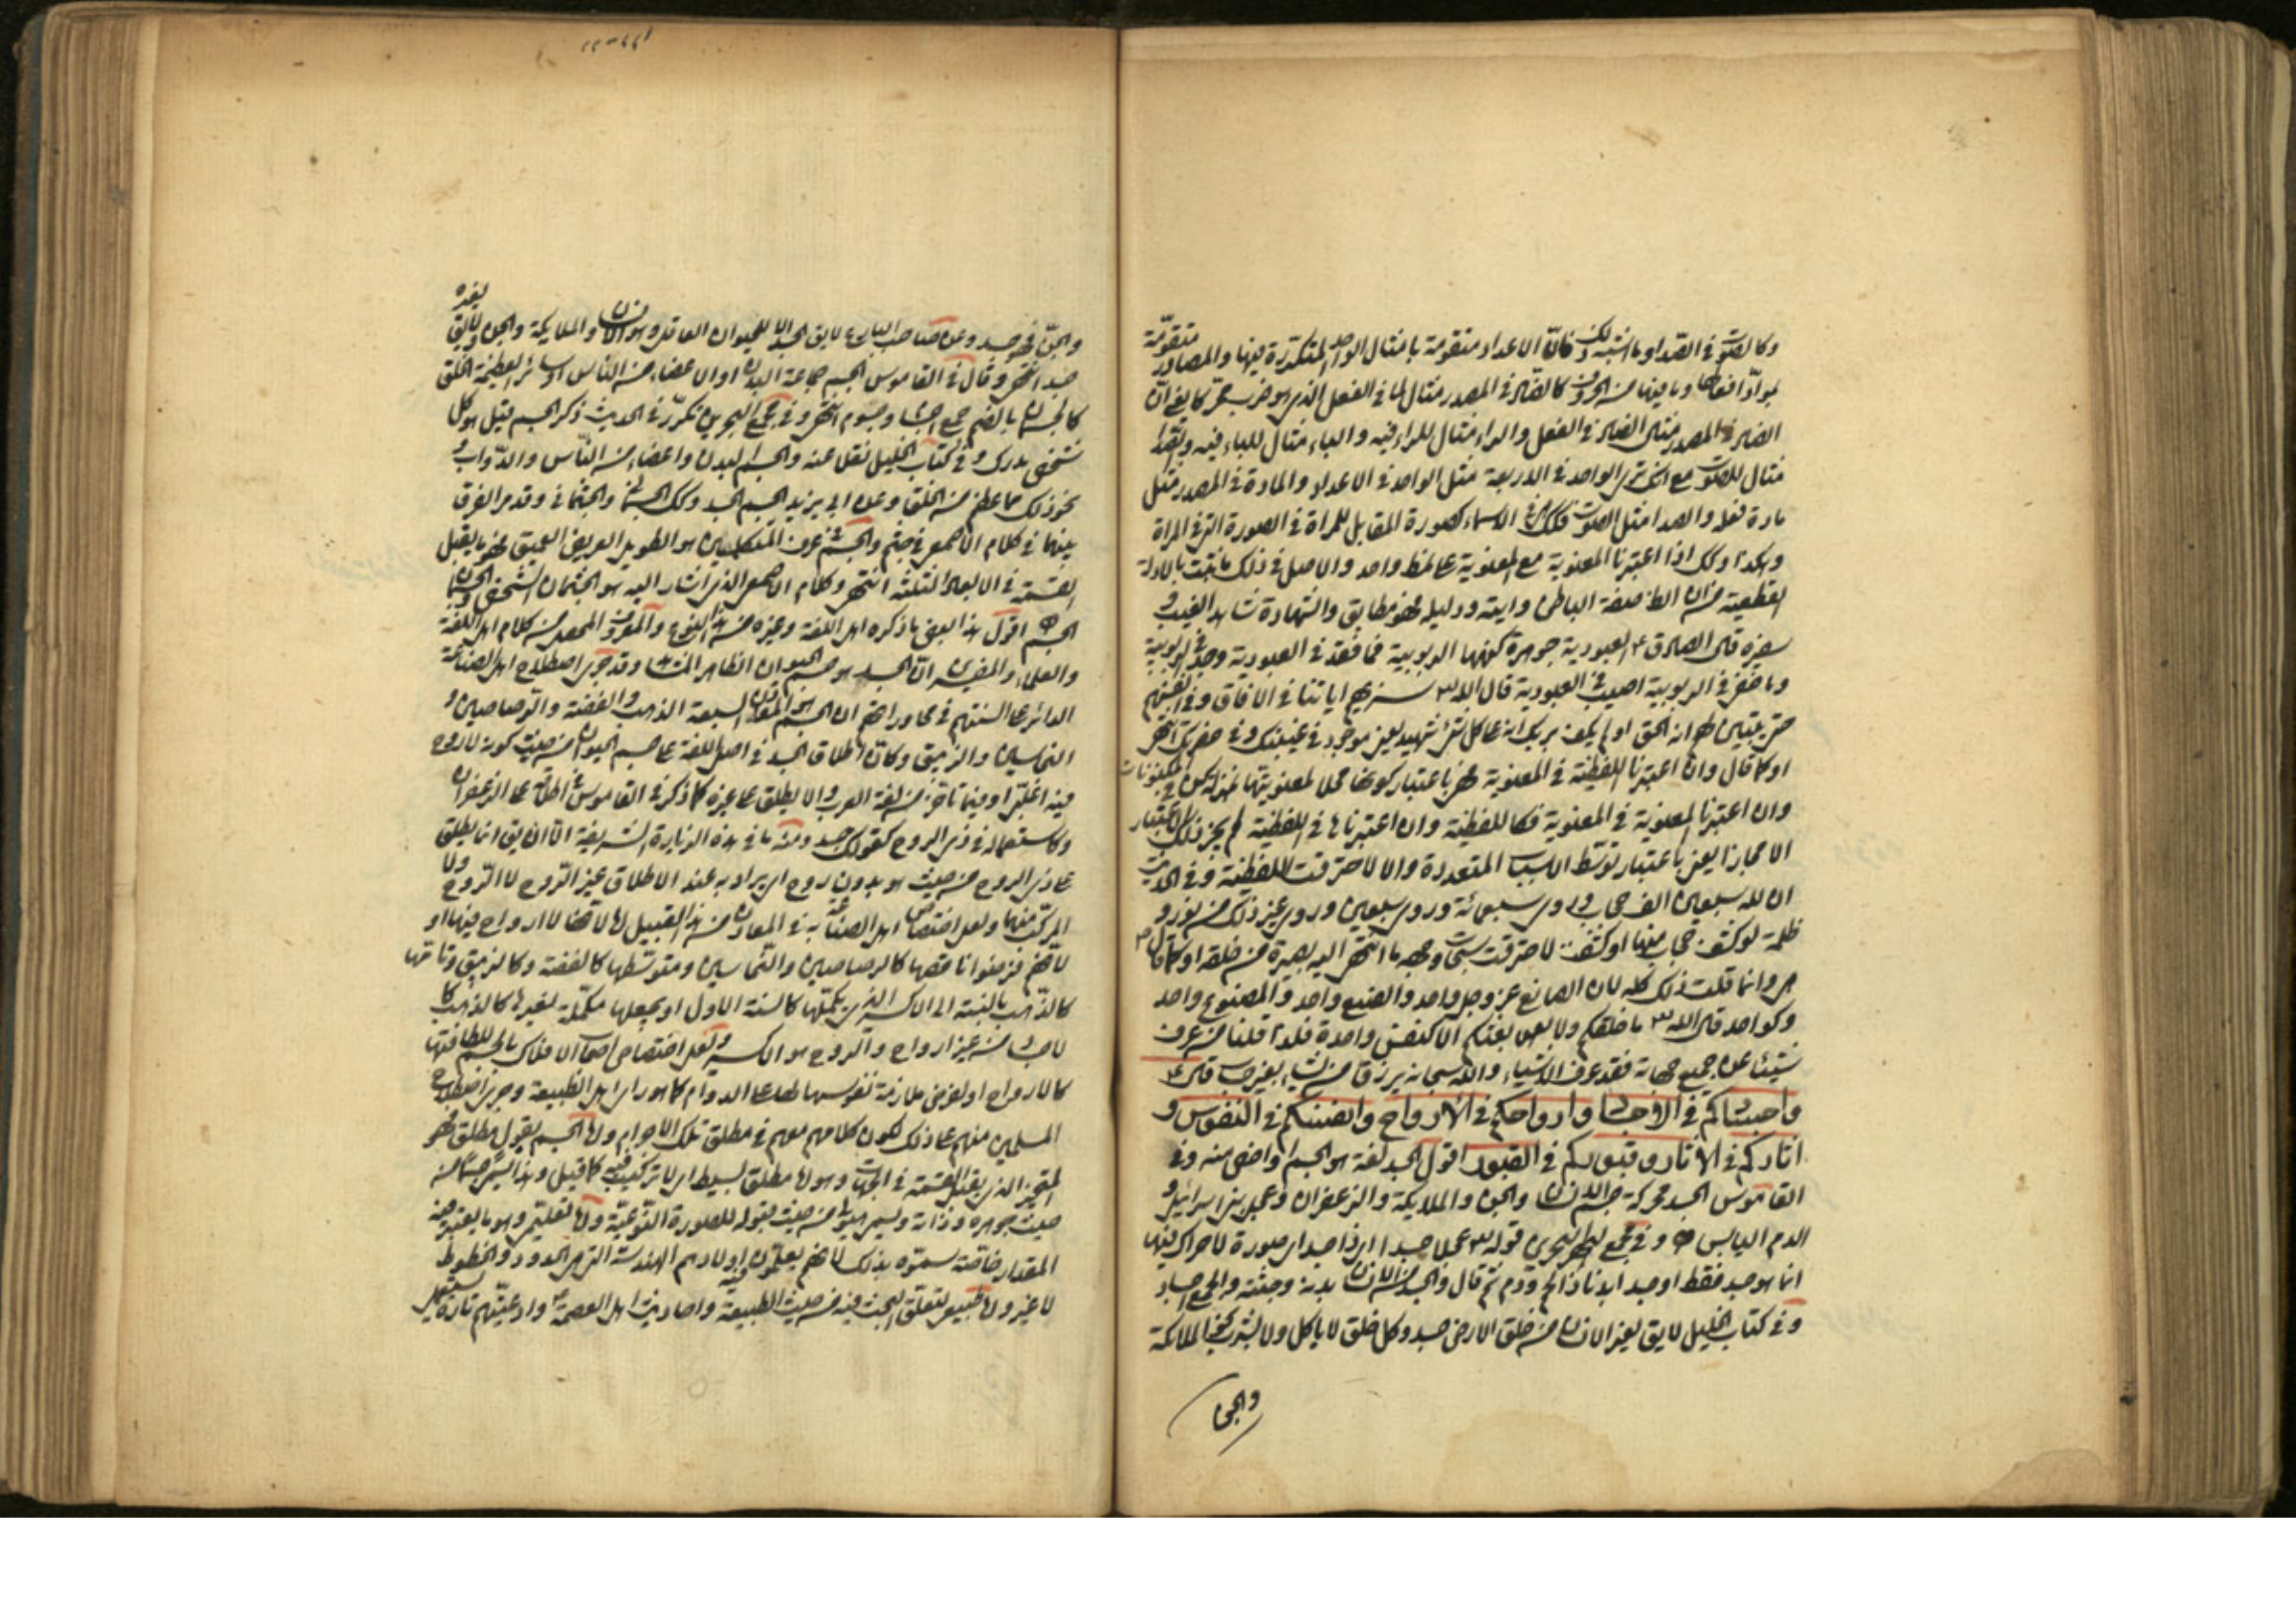 وكالصوت في الصدا وما اشبه ذلك فانّ الاعداد متقومة بامثال الواحد المتكررة فيها والمصادر متقوّمة
بموادّ افعالها وما فيها من الحروف كالضاد في المصدر مثال لما في الفعل الذي هو ضرب حقيقة يعني انّ
الضاد في المصدر مثال الضاد في الفعل والراء مثال للراء فيه والباء مثال للباء فيه والصدا
مثال للصوت مع انك ترى الواحد في الاربعة مثل الواحد في الاعداد والمادة في المصدر مثل
مادة فعله والصدا مثل الصوت فكك في الاسماء كصورة المقابل للمراة في الصورة التي في المراة
وهكذا وكك اذا اعتبرنا المعنوية مع المعنوية على نمط واحد والاصل في ذلك ما ثبت بالادلة
القطعية من ان الظ صفة الباطن وايته ودليله فهو مطابق والشهادة شاهد الغيب و
سفيره قال الصادق ع العبودية جوهرة كنهها الربوبية فما فقد في العبودية وجد في الربوبية
وما خفي في الربوبية اصيب في العبودية قال الله تع سنريهم اياتنا في الافاق وفي انفسهم
حتى يتبين لهم انه الحق او لم يكف بربك انه على كل شئ شهيد يعني موجود في غيبتك وفي حضرتك انتهى
او كما قال وان اعتبرنا اللفظية في المعنوية فهي باعتبار كونها محلا لمعنويتها
وان اعتبرنا المعنوية في المعنوية فكاللفظية وان اعتبرناها في اللفظية لم يجز ذلك الاعتبار
الا مجازا يعني باعتبار توسّط الاسباب المتعددة والا لاحترقت اللفظية وفي الحديث
ان لله سبعين الف حجاب وروي سبعمائة وروي سبعين وروي غير ذلك من نور و
ظلمة لو كشف حجاب منها او كشفت لاحترقت سبحات وجهه ما انتهى اليه بصره من خلقه او كما قال
وانما قلت ذلك كله لان الصانع عز وجل واحد والصنع واحد والمصنوع واحد
وكواحد قال الله تع ما خلقكم ولا بعثكم الا كنفس واحدة فلذا قلنا من عرف
شيئا من جميع جهاته فقد عرف الاشياء والله سبحانه يرزق من يشاء بغير حساب قال ع
واجسادكم في الاجساد وارواحكم في الارواح وانفسكم في النفوس و
اثاركم في الاثار وقبوركم في القبور اقول الجسد لغة هو الجسم او اخص منه وفي
القاموس الجسد محركة جسم الانسان والجن والملايكة والزعفران وعجل بني اسرائيل و
الدم اليابس وفي مجمع البحرين قوله تع عجلا جسدا اي ذا جسد اي صورة لا حراك فيها
انما هو جسد فقط او جسد ابدنا ذا لحم ودم ثم قال والجسد من الانسان بدنه وجثته والجمع اجساد
وفي كتاب الخليل لا يق لغير الانسان من خلق الارض جسد وكل خلق لا ياكل ولا يشرب نحو الملائكة
والجن
والجنّ فهو جسد وعن صاحب البارع لا يق الجسد الا للحيوان العاقل وهو الانسان والملايكة والجن ولا يق لغيره
جسد انتهى وقال في القاموس الجسم جماعة البدن او الاعضاء من الناس وسائر العظيمة الخلق
كالجسمان بالضم جمع اجسام وجسوم انتهى وفي مجمع البحرين تكرّر في الحديث ذكر الجسم قيل هو كل
شخص يدرك وفي كتاب الخليل نقل عنه والجسم البدن واعضاء من النّاس والدّوابّ و
نحو ذلك مما عظم من الخلق وعن ابي يزيد الجسم الجسد وكك الجسمان والجثمان وقد مر الفرق
بينهما في كلام الاصمعي في جثم والجسم في عرف المتكلمين هو الطويل العريض العميق فهو ما يقبل
القسمة في الابعاد الثلثة انتهى وكلام الاصمعي الذي اشار اليه هو الجثمان الشخص والجسمان
الجسم اقول هذا البعض ما ذكره اهل اللغة وغيره من هذا النوع والمعروف المحصل من كلام اهل اللغة
والعلماء والمفسرين انّ الجسد هو جسم الحيوان الظاهر وقد جرى اصطلاح اهل الصناعة
الدائر على السنتهم في محاوراتهم ان الجسم هو المعادن السبعة الذهب والفضة والرصاصين و
النحاسين والزيبق وكانّ اطلاق الجسد في اصل اللغة على جسم الحيوان من حيث كونه لا روح
فيه اغلبيّ او فيما تاخر من لغة العرب والا يطلق على غيره كما ذكر في القاموس في اطلاقه على الزعفران
وكاستعماله في ذي الروح كقولك جسد ومنه ما في هذه الزيارة الشريفة الا ان يق انما يطلق
على ذي الروح من حيث هو بدون روح اي يراد به عند الاطلاق غير الروح لا الروح ولا
المركّب منها ولعل اختصاص اهل الصناعة به في المعادن من هذا القبيل لانها لا ارواح فيها او
لانهم فرضوا ناقصها كالرصاصين والنّحاسين ومتوسّطها كالفضة وكالزيبق وتامّها
كالذّهب بالنسبة الى الاكسير الذي يكملها كالسنة الاول او يجعلها مكمّلة لغيرها كالذهب كا
لاجساد من غير ارواح والروح هو الاكسير ولعل اختصاص اصحاب الافلاك بالجسم للطافتها
كالارواح او لفرض ملازمة نفوسها لها على الدوام كما هو راي اهل الطبيعة وجرى اصطلاح
المسلمين منهم على ذلك لكون كلامهم معهم في مطلق تلك الاجرام ولهذا الجسم يقول مطلق فهو
المتحيز الذي يقبل القسمة في الجهات وهو لها مطلق بسيط اي لا تركيب فيه كما قيل وهذا ليس جسما من
حيث جوهره وذاته ويسمى هيولى من حيث قبوله للصورة النّوعيّة ولها تعليمي وهو ما يعتبر فيه
المقدار خاصّة سمّوه بذلك لانهم يعلّمون اولادهم الهندسة التي هي الحدود والخطوط
لا غير ولها طبيعي لتعلّق البحث فيه من حيث الطبيعة واحاديث اهل العصمة ع وادعيتهم تارة يستعمل